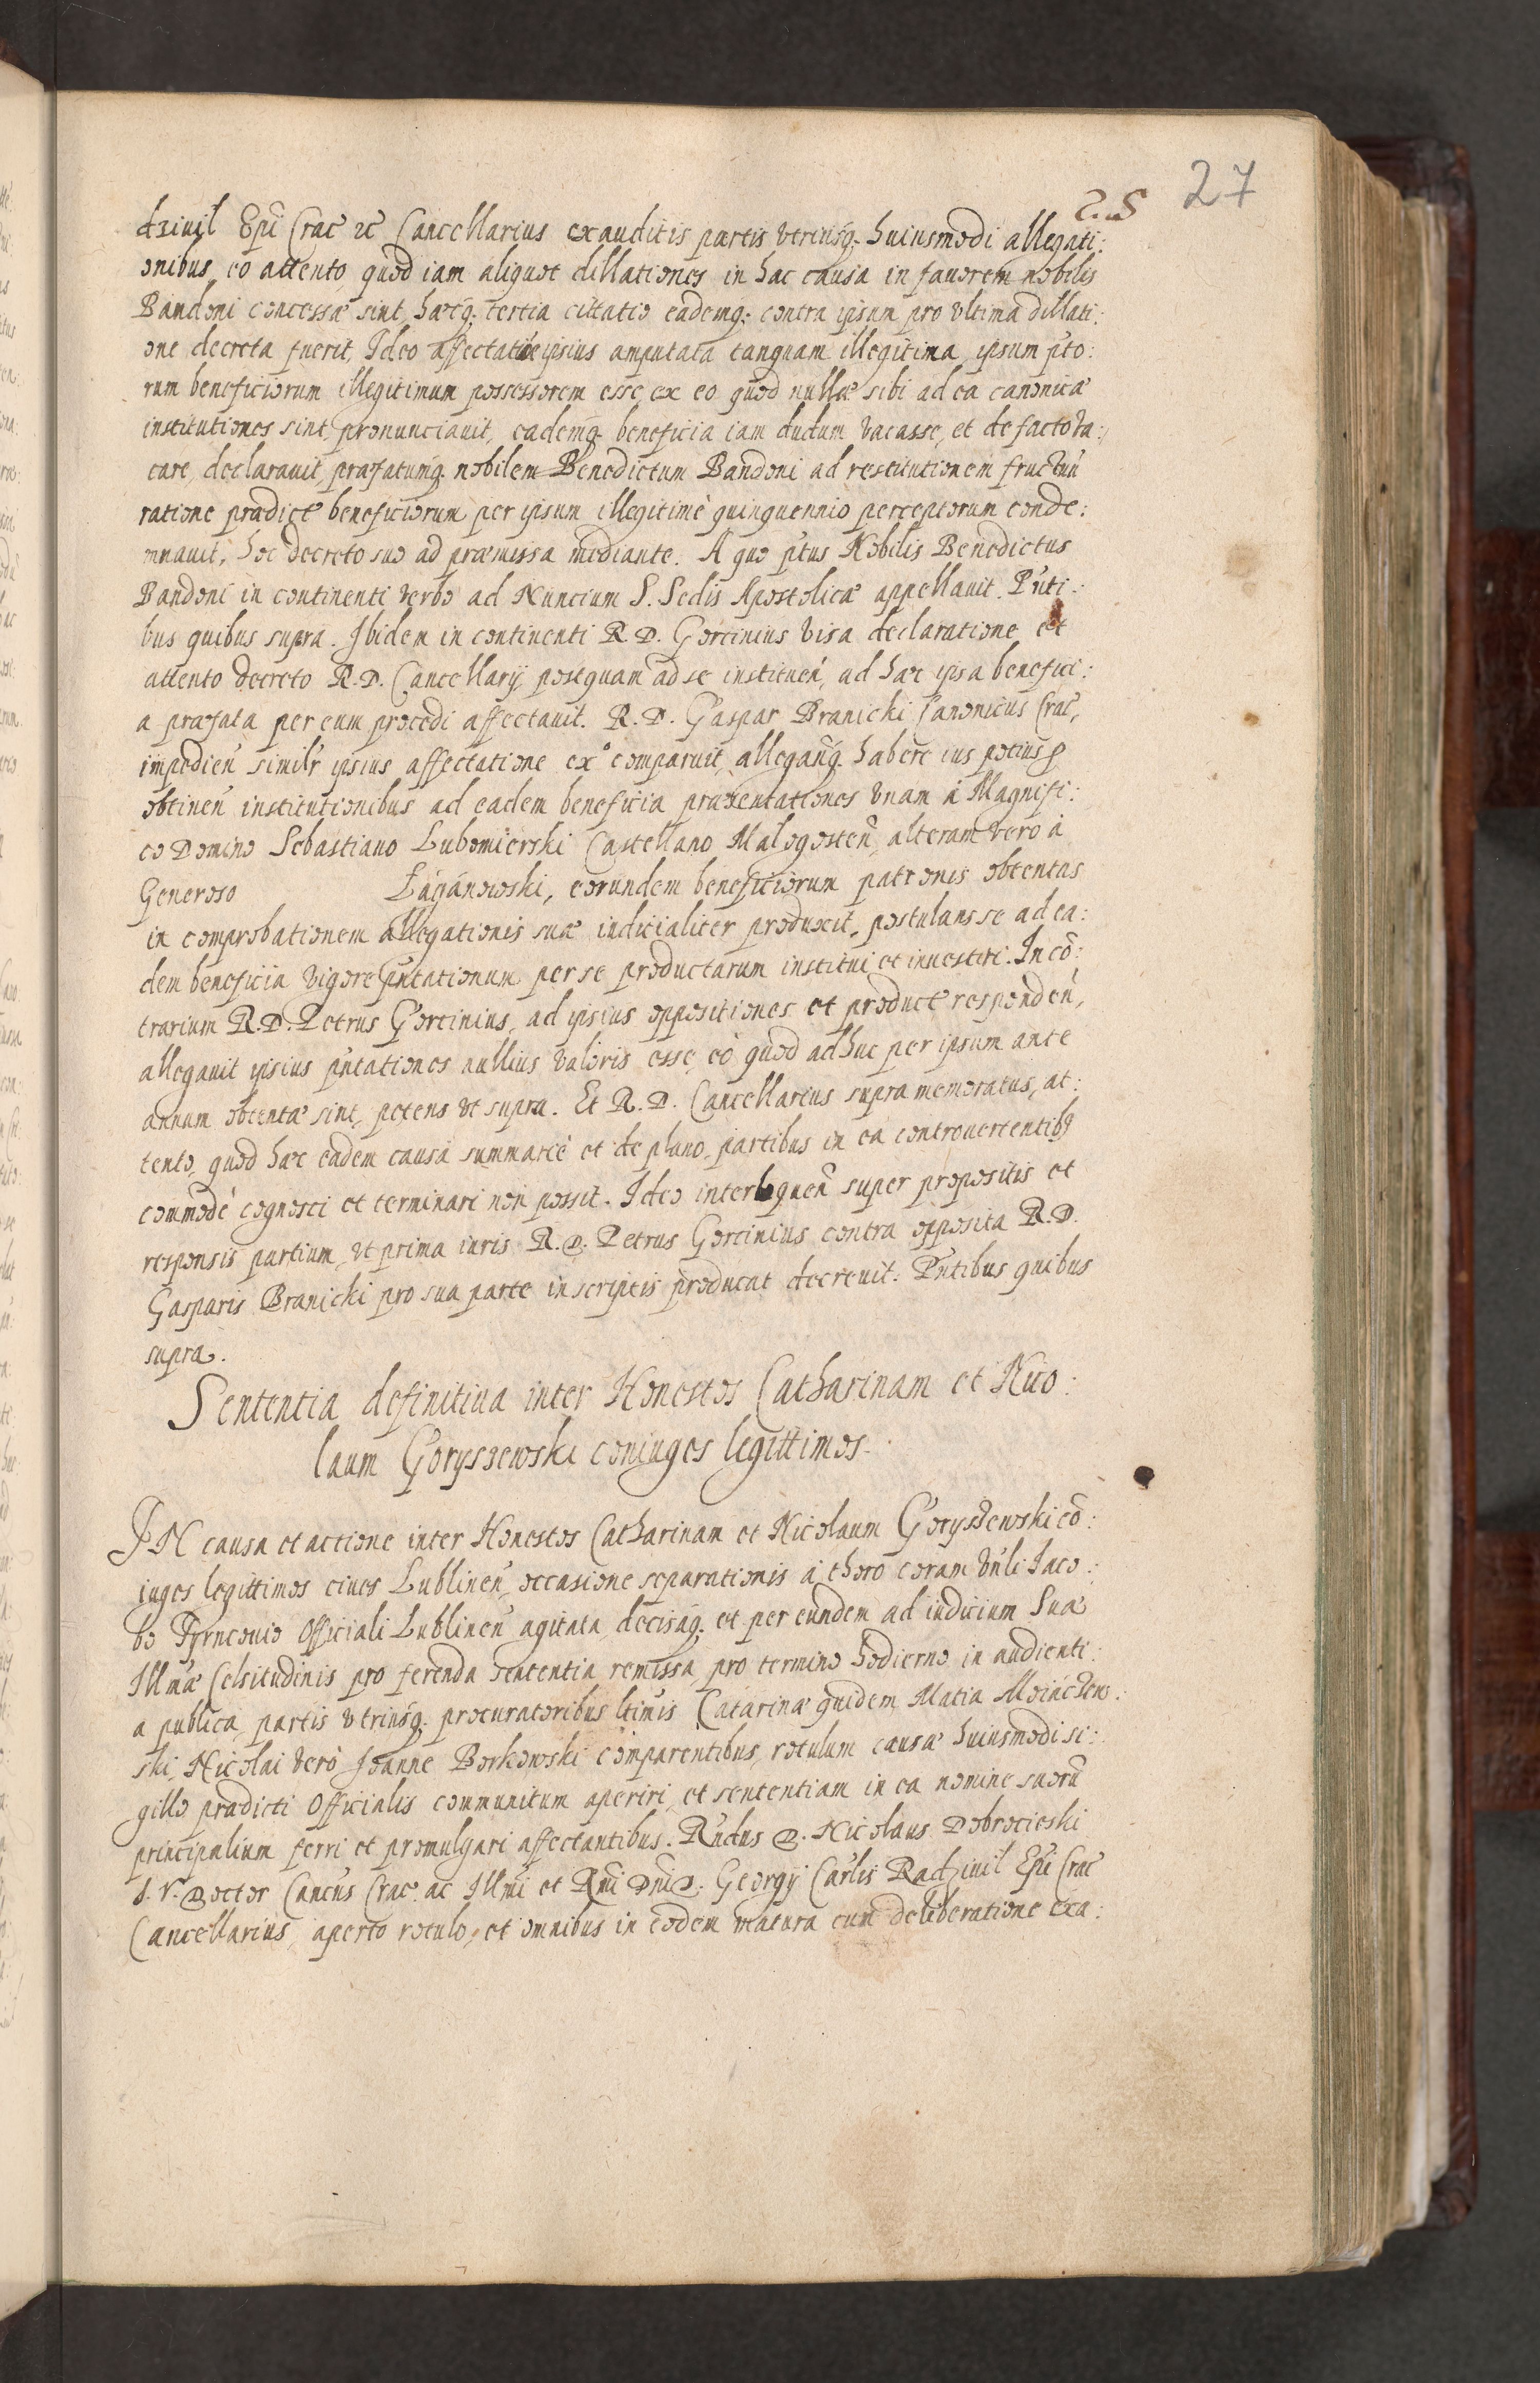 27
dziuil Epi Crac̄ zc̄ Cancellarius exauditis partis vtriusq; huiusmodi allegati:
onibus, eo attento, quod iam aliquot dillationes in hac causa in fauorem nobilis
Bandoni concessæ sint, hæcq; tertia cittatio eademq; contra ipsum pro vltima dillati:
one decreta fuerit, Ideo affectatione ipsius amputata tanquam illegitima, ipsum p̄to:
rum beneficiorum illegitimum possessorem esse, ex eo quod nullæ sibi ad ea canonicæ
institutiones sint, pronunciauit, eademq; beneficia iam dudum vacasse, et de facto va:
care, declarauit, præfatumq; nobilem Benedictum Bandoni ad restitutionem fructuū
ratione prædict̄ beneficiorum per ipsum illegitimè quinquennio perceptorum conde:
mnauit, hoc decreto suo ad præmissa mediante. A quo p̄tus Nobilis Benedictus
Bandoni in continenti verbo ad Nuncium S. Sedis Apostolicæ appellauit. P̄nti:
bus quibus supra. Ibidem in continenti R. D. Gorcinius visa declaratione et
attento decreto R. D. Cancellarij postquam ad se instituen̄, ad hæc ipsa benefici:
a præfata per eum procedi affectauit. R. D. Gaspar Branicki Canonicus Crac̄,
impedien̄ similr̄ ipsius affectatione ex° comparuit, allegan̄q; habere ius potius p̱
obtinen̄ institutionibus ad eadem beneficia præsentationes vnam à Magnifi:
co Domino Sebastiano Lubomierski Castellano Malogosten̄, alteram vero à
Generoso Łaganowski, eorundem beneficiorum patronis obtentas
in comprobationem allegationis suæ iudicialiter produxit, postulans se ad ea:
dem beneficia vigore p̄ntationum per se productarum institui et inuestiri. In cō:
trarium R. D. Petrus Gorcinius, ad ipsius oppositiones et product̄ responden̄,
allegauit ipsius p̄ntationes nullius valoris esse, eò quod adhuc per ipsum ante
annum obtentæ sint, petens vt supra. Et R. D. Cancellarius supra memoratus, at:
tento, quod hæc eadem causa summariè et de plano, partibus in ea controuertentibꝰ
commodè cognosci et terminari non possit. Ideo interloquen̄ super propositis et
responsis partium, vt prima iuris R. D. Petrus Gorcinius contra opposita R. D.
Gasparis Branicki pro sua parte in scriptis producat decreuit. P̄ntibus quibus
supra.
Sententia definitiua inter Honestos Catharinam et Nico:
laum Goryszewski coniuges legittimos.
IN causa et actione inter Honestos Catharinam et Nicolaum Goryszewski cō:
iuges legittimos ciues Lublinen̄, occasione separationis à thoro coram Vn̄li Iaco:
bo Tyrnowio Officiali Lublinen̄ agitata, decisaq; et per eundem ad iudicium Suæ
Illmæ Celsitudinis pro ferenda sententia remissa, pro termino hodierno in audienti:
a publica, partis vtriusq; procuratoribus ltimis Catarinæ quidem Matia Moiaczew:
ski, Nicolai verò Joanne Borkowski comparentibus, rotulum causæ huiusmodi si:
gillo prædicti Officialis communitum aperiri, et sententiam in ea nomine suorū
principalium ferri et promulgari affectantibus. Rn̄dus D. Nicolaus Dobrocieski
I. V. Doctor Can̄cus Crac̄ ac Illmi et Rmi Dni D. Georgij Car̄lis Radziuil Epi Crac̄
Cancellarius, aperto rotulo, et omnibus in eodem matura cum deliberatione exa: